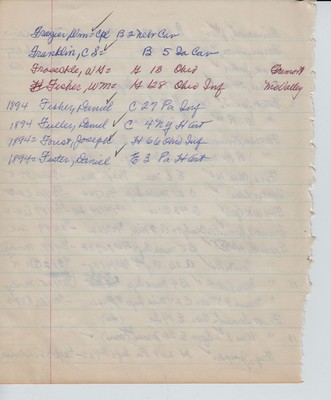 Frazier, Wm = Cpl B 2 Nebr Cav
Franklin, C S = B 5 Ia Cav
W H = G 18 Ohio Fremont
Fisher, Wm = H 128 Ohio Inf McCalley
1894 Fisher, Daniel C 27 Pa Inf
1894 Fuller, Daniel C 4 NY H Art
1894 = Foust, Joseph H 66 Ohio Inf
1894 = Foster, Daniel E 3 Pa H Art